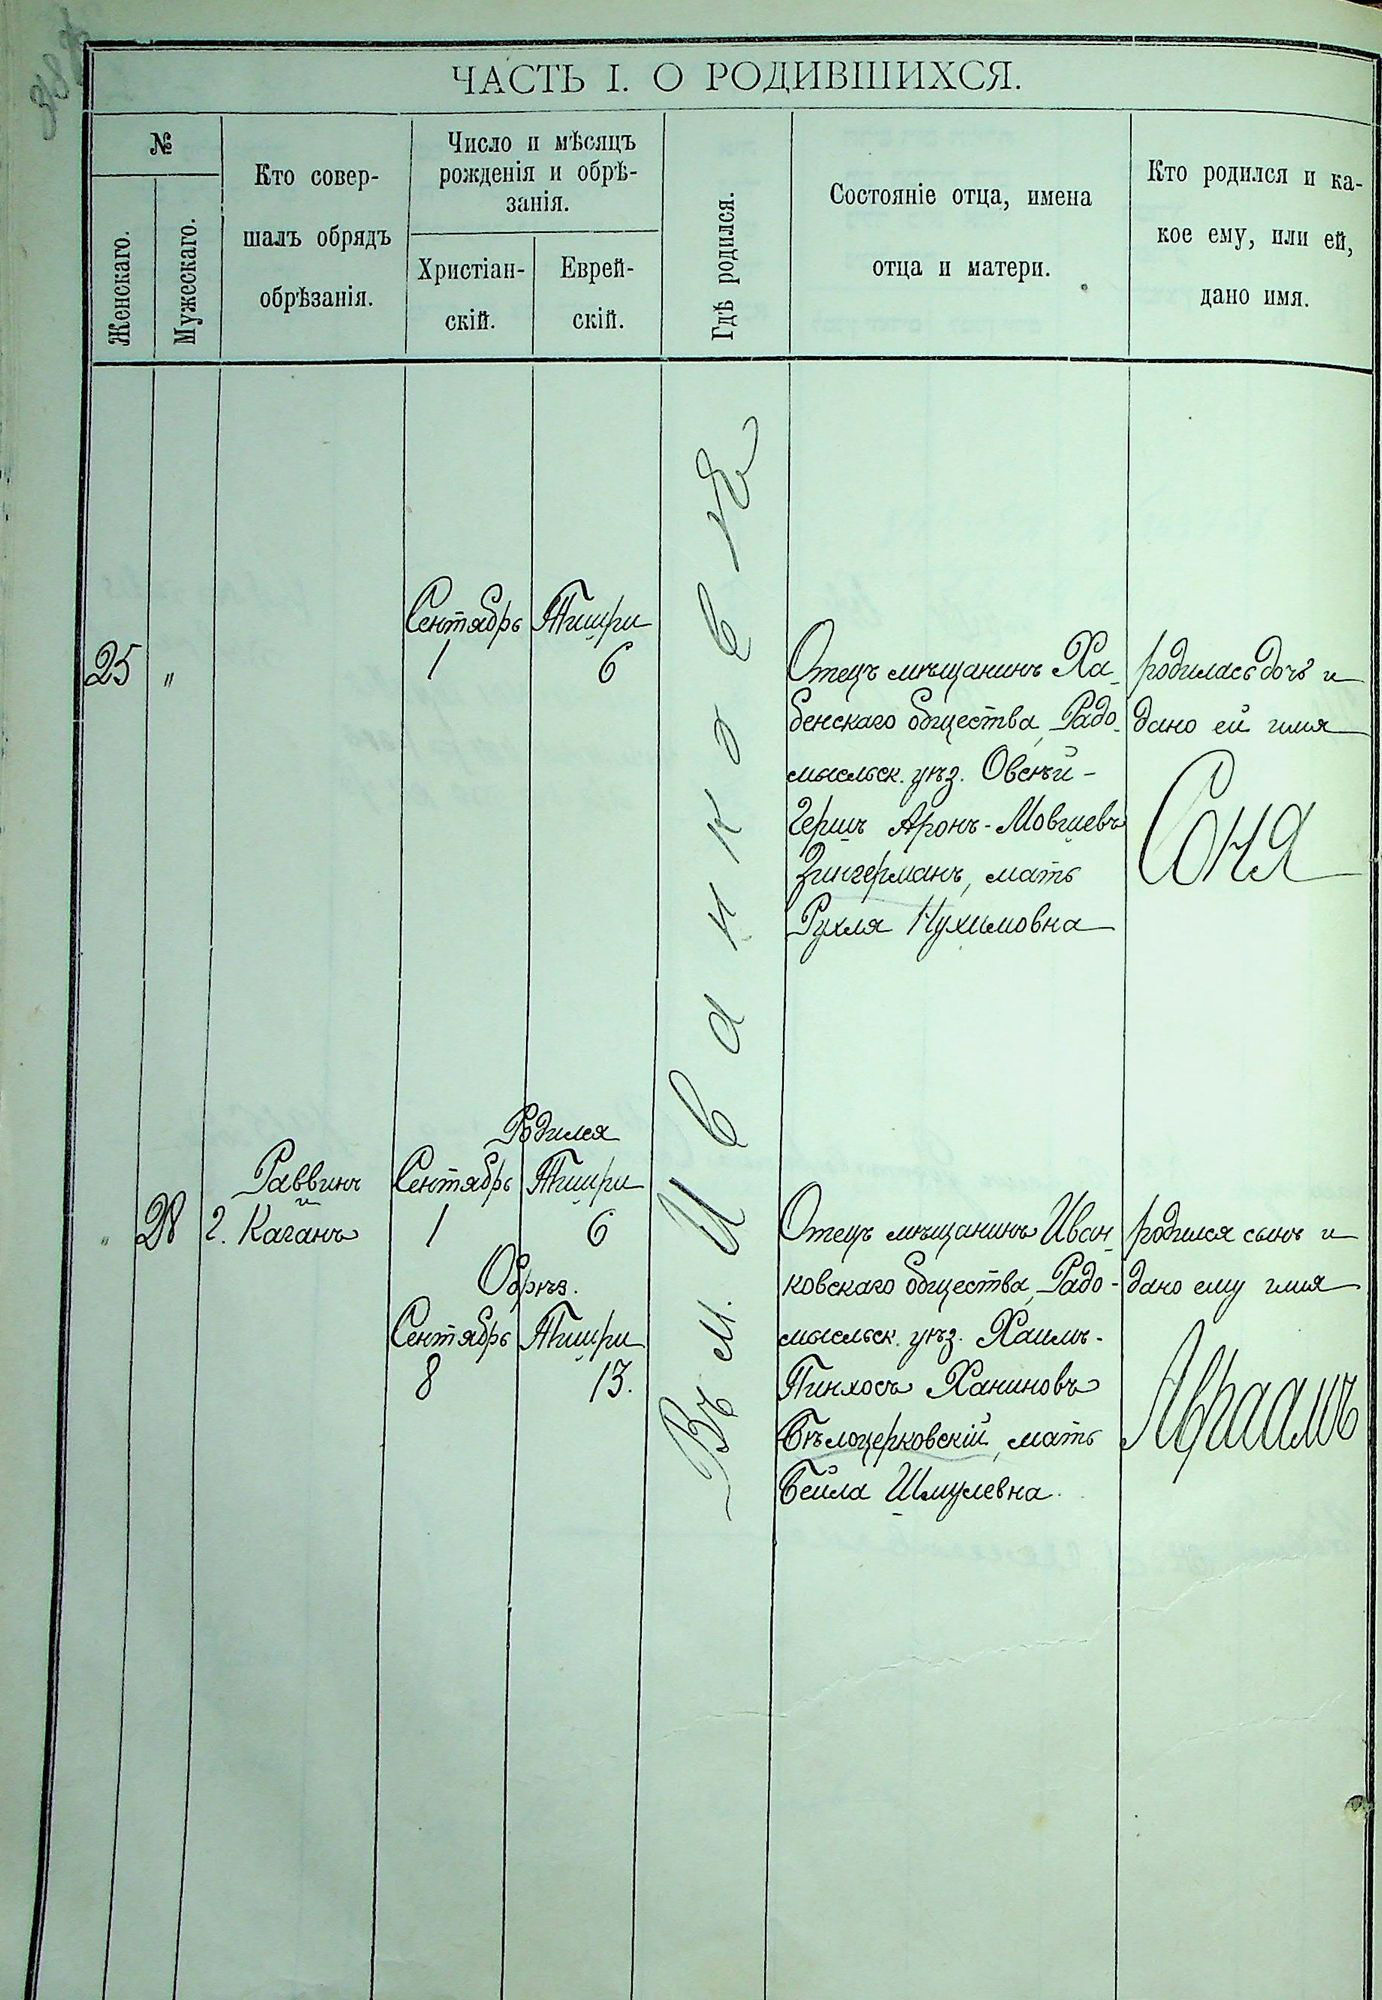 ЧАСТЬ I. О РОДИВШИХСЯ.
№
Женскаго.
Мужескаго.
Кто совер-
шалъ обрядъ
обрѣзанія.
Число и мѣсяцъ
рожденія и обрѣ-
занія.
Христіан-
скій.
Еврей-
скій.
Гдѣ родился.
Состояніе отца, имена
отца и матери.
Кто родился и ка-
кое ему, или ей,
дано имя.
25
"
Сентябрь
1
Тишри
6
Въ м. Иванковѣ
Отецъ мѣщанинъ Ха-
бенскаго общества, Радо-
мысльск. уѣз. Овсѣй-
Гершъ Аронъ-Мовшевъ
Зингерманъ, мать
Рухля Нухимовна
родилась дочь и
дано ей имя
Соня
"
28
Раввинъ
и
г. Каганъ
Родился
Сентябрь
1
Тишри
6
Обрѣз.
Сентябрь
8
Тишри
13.
Отецъ мѣщанинъ Иван-
ковскаго общества, Радо-
мысльск. уѣз. Хаимъ-
Пинхосъ Ханиновъ
Бѣлоцерковскій, мать
Бейла Шмулевна.
родился сынъ и
дано ему имя
Авраамъ